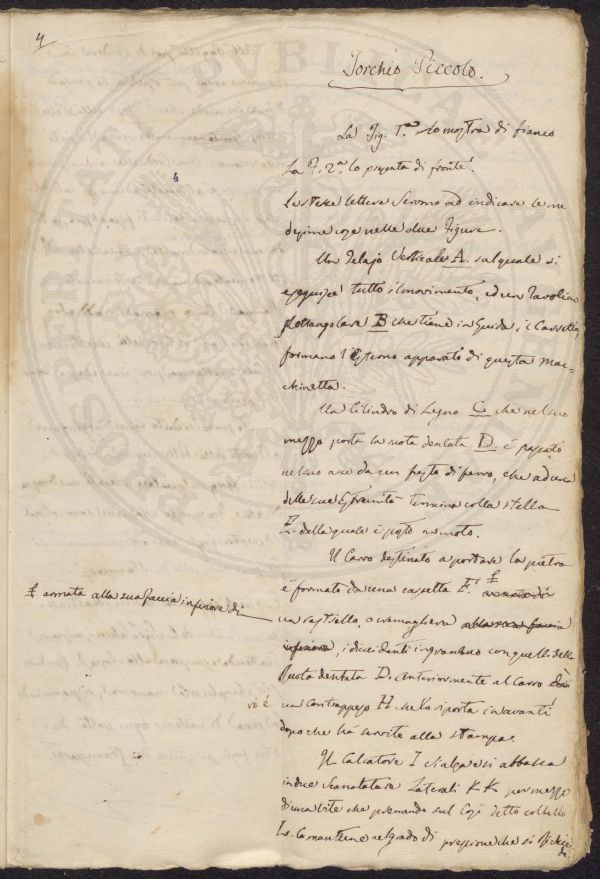 4
Torchio Piccolo.
La Fig. 1.a lo mostra di fianco
La F. 2.a lo presenta di fronte.
Le stesse lettere servono ad indicare le me
desime cose nelle due figure.
Un Telajo Verticale A. sul quale si
eseguisce tutto il movimento, ed un Tavolino
Rettangolare B che tiene in Guida, il Carretto,
formano l'Esterno apparato di questa mac-
chinetta.
Un Cilindro di Legno C che nel suo
mezzo porta la ruota dentata D. è passato
nel suo asse da un pezzo di ferro, che ad una
delle sue Estremità termina colla stella
E. dalla quale è posto in moto.
Il Carro destinato a portare la pietra
è formato da una cassetta F.
armata alla sua faccia inferiore di
un rastrello, o cremagliera alla sua faccia
inferiore, i di cui denti ingranano con quelli della
Ruota dentata D. Anteriormente al Carro
vi è
un contrappeso H che lo riporta in avanti
dopo che ha servito alla stampa.
Il Calcatore I si alza e si abbassa
in due Scanalature Laterali K K per mezzo
di una vite che premendo sul Cosi detto coltello
L. lo mantiene nel grado di pressione che si